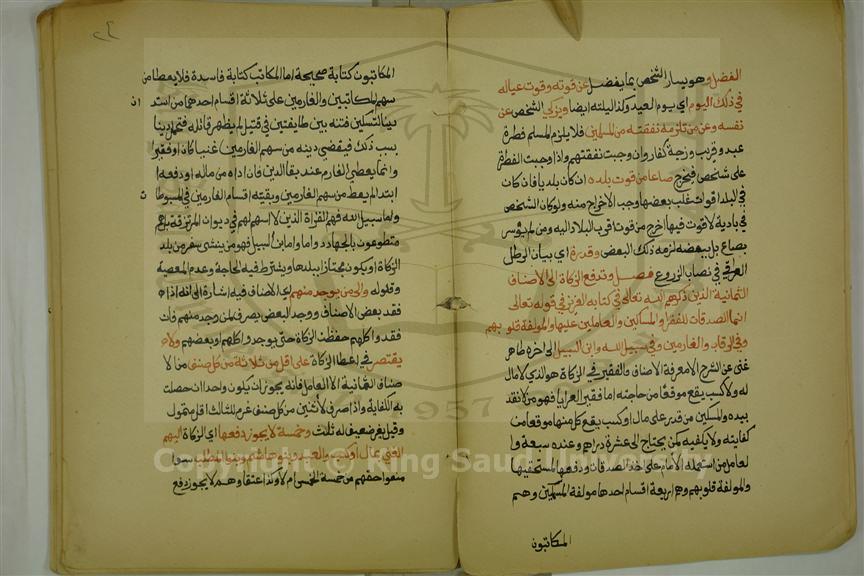 الفضل وهو يسار الشخص بما يفضل عن قوته وقوت عياله
في ذلك اليوم اي يوم العيد وكذا ليلته ايضا ويزكي الشخص عن
نفسه وعن من تلزمه نفقته من المسلمين فلا يلزم المسلم فطرة
عبد وقريب وزجة كفار وان وجبت نفقتهم واذا وجبت الفطرة
على شخص فيخرج صاعا من قوت بلده ان كان بلديا فان كان
في البلد اقوات غلب بعضها وجب الاخراج منه ولو كان الشخص
في بادية لا قوت فيها اخرج من قوت اقرب البلاد اليه ومن لم يوسر
بصاع بل ببعضه لزمه ذلك البعض وقدره اي بيان الرطل
العراقي في نصاب الزروع فصل وتدفع الزكاة الى الاصناف
الثمانية الذين ذكرهم الله تعالى في كتابه العزيز في قوله تعالى
انما الصدقات للفقرا والمساكين والعاملين عليها والمولفة قلوبهم
وفي الرقاب والغارمين وفي سبيل الله وابن السبيل الى اخره ظاهر
غنى عن الشرح الا معرفة الاصناف فالفقير في الزكاة هو الذي لا مال
له ولا كسب يقع موقعا من حاجته اما فقير العرايا فهو من لا نقد
بيده والمسكين من قدر على مال او كسب يقع كل منهما موقعا من
كفايته ولا يكفيه كمن يحتاج الى عشرة دراهم وعنده سبعة وا
لعامل من استعمله الامام على اخذ الصدقات ودفعها لمستحقيها
والمولفة قلوبهم وهم اربعة اقسام احدها مولفة المسلمين وهم
المكاتبون
٢٤
المكاتبون كتابة صحيحة اما المكاتب كتابة فاسدة فلا يعطا من
سهم المكاتبين والغارمين على ثلاثة اقسام احدها من استدان
دينا لتسكين فتنه بين طايفتين في قتيل لم يظهر قاتله فتحمل دينا
بسبب ذلك فيقضي دينه من سهم الغارمين غنيا كان او فقيرا
وانما يعطي الغارم عند بقا الدين فان اداه من ماله او دفعه ا
ابتدا لم يعط من سهم الغارمين وبقيته اقسام الغارمين في المبسوطات
واما سبيل الله فهم الغزاة الذين لا سهم لهم في ديوان المرتزقة بل هم
متطوعون بالجهاد واما وامابن السبيل فهو من ينشى سفر من بلد
الزكاة او يكون مجتاز ابلدها ويشترط فيه الحاجة وعدم المعصية
وقلوله والى من يوجد منهم اي الاصناف فيه اشارة الى انه اذا ه
فقد بعض الاصناف ووجد البعض يصرف لمن وجد منهم فان
فقدوا كلهم حفظت الزكاة حتى يوجدوا كلهم او بعضهم ولا ه
يقتصر في اعطا الزكاة على اقل من ثلاثة من كل صنف من الا
صناف الثمانية الا العامل فانه يجوز ان يكون واحدا ان حصلت
به الكفاية واذا صرف لاثنين من كل صنف غرم للثالث اقل متمول
وقيل يغرم ضعيف له ثلث وخمسة لا يجوز دفعها اي الزكاة اليهم
الغني بمال او كسب والعبد وبنو هاشم وبنو المطلب سوا
منعوا حقهم من خمسة الخمس ام لا وكذا عتقاوهم لا يجوز دفع